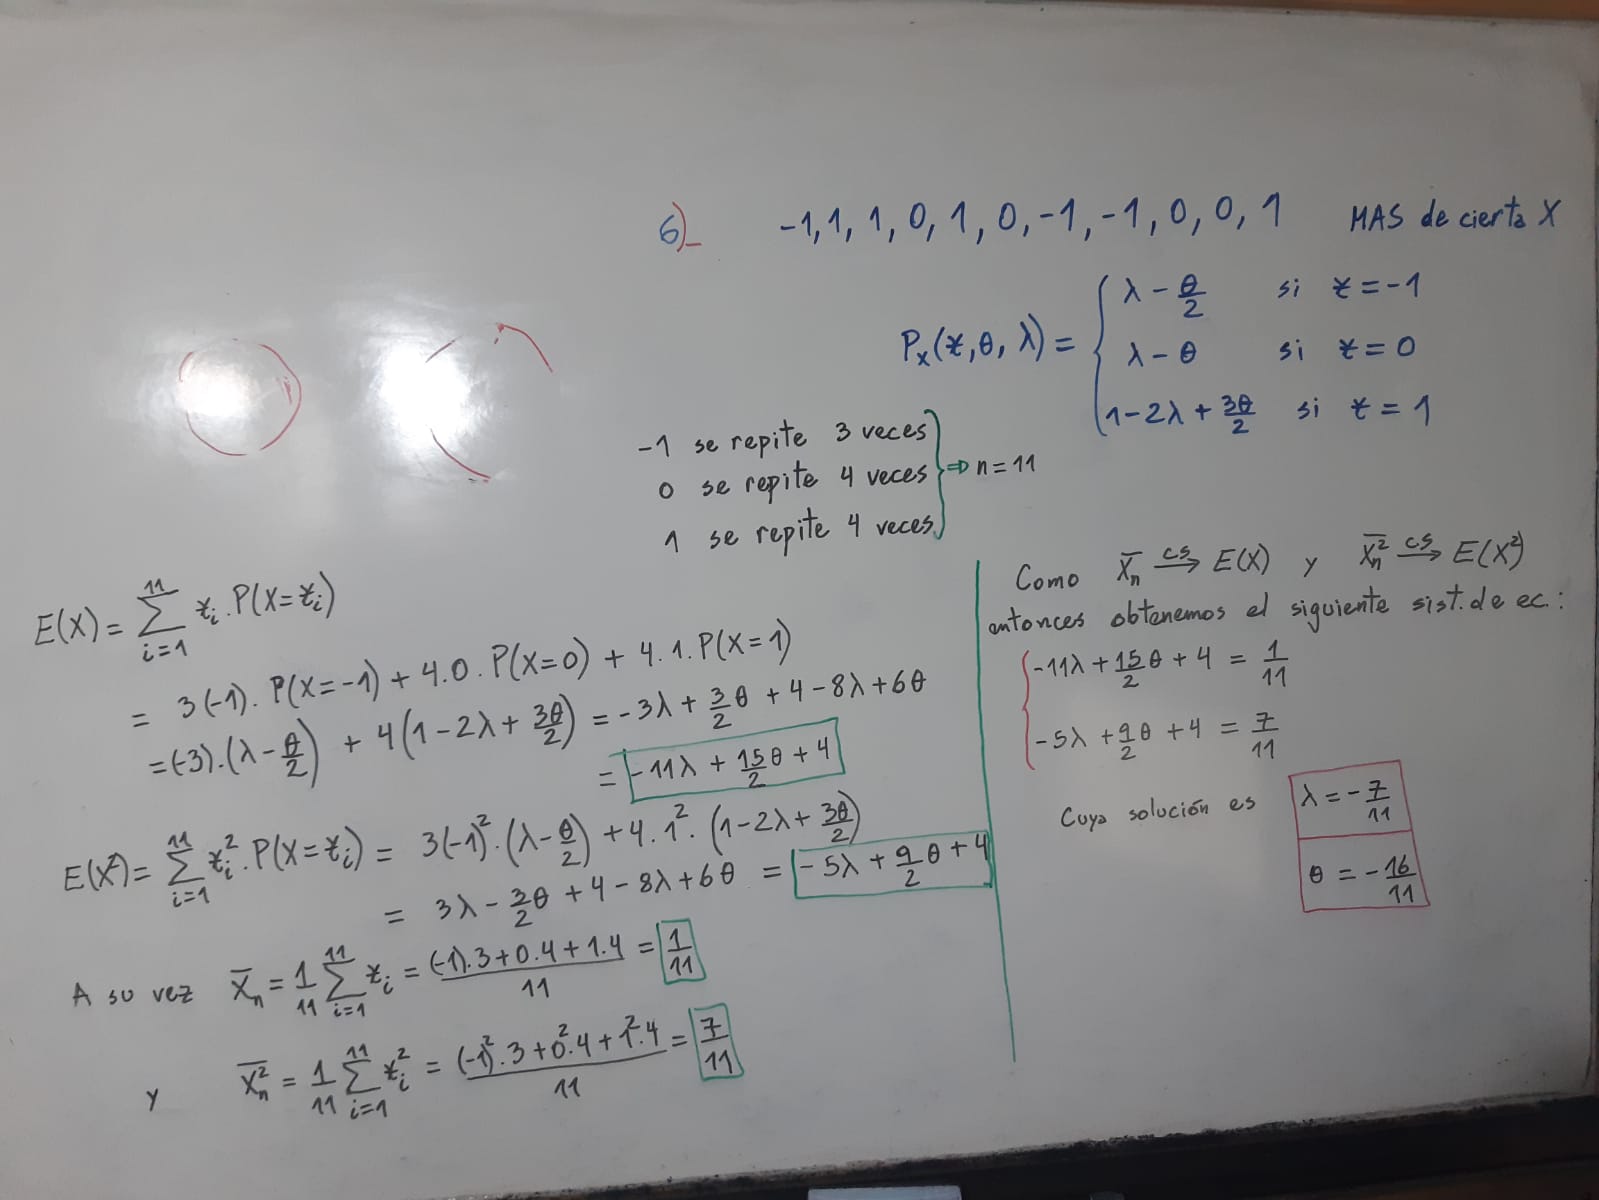 6)- -1, 1, 1, 0, 1, 0, -1, -1, 0, 0, 1 MAS de cierta X
Pₓ(x, θ, λ) = { λ - θ/2 si x = -1
λ - θ si x = 0
1 - 2λ + 3θ/2 si x = 1
-1 se repite 3 veces
0 se repite 4 veces } ⇒ n = 11
1 se repite 4 veces
E(X) = ∑_{i=1}^{11} x_i . P(X = x_i)
= 3(-1). P(X = -1) + 4.0. P(X = 0) + 4.1. P(X = 1)
= (-3).(λ - θ/2) + 4(1 - 2λ + 3θ/2) = -3λ + 3/2 θ + 4 - 8λ + 6θ
= -11λ + 15/2 θ + 4
E(X²) = ∑_{i=1}^{11} x_i² . P(X = x_i) = 3(-1)² . (λ - θ/2) + 4. 1² . (1 - 2λ + 3θ/2)
= 3λ - 3/2 θ + 4 - 8λ + 6θ = -5λ + 9/2 θ + 4
A su vez X̄_n = 1/11 ∑_{i=1}^{11} x_i = ((-1).3 + 0.4 + 1.4)/11 = 1/11
y \overline{X_n^2} = 1/11 ∑_{i=1}^{11} x_i² = ((-1)².3 + 0².4 + 1².4)/11 = 7/11
Como X̄_n →^{cs} E(X) y \overline{X_n^2} →^{cs} E(X²)
entonces obtenemos el siguiente sist. de ec.:
{ -11λ + 15/2 θ + 4 = 1/11
-5λ + 9/2 θ + 4 = 7/11
Cuya solución es λ = -7/11
θ = -16/11